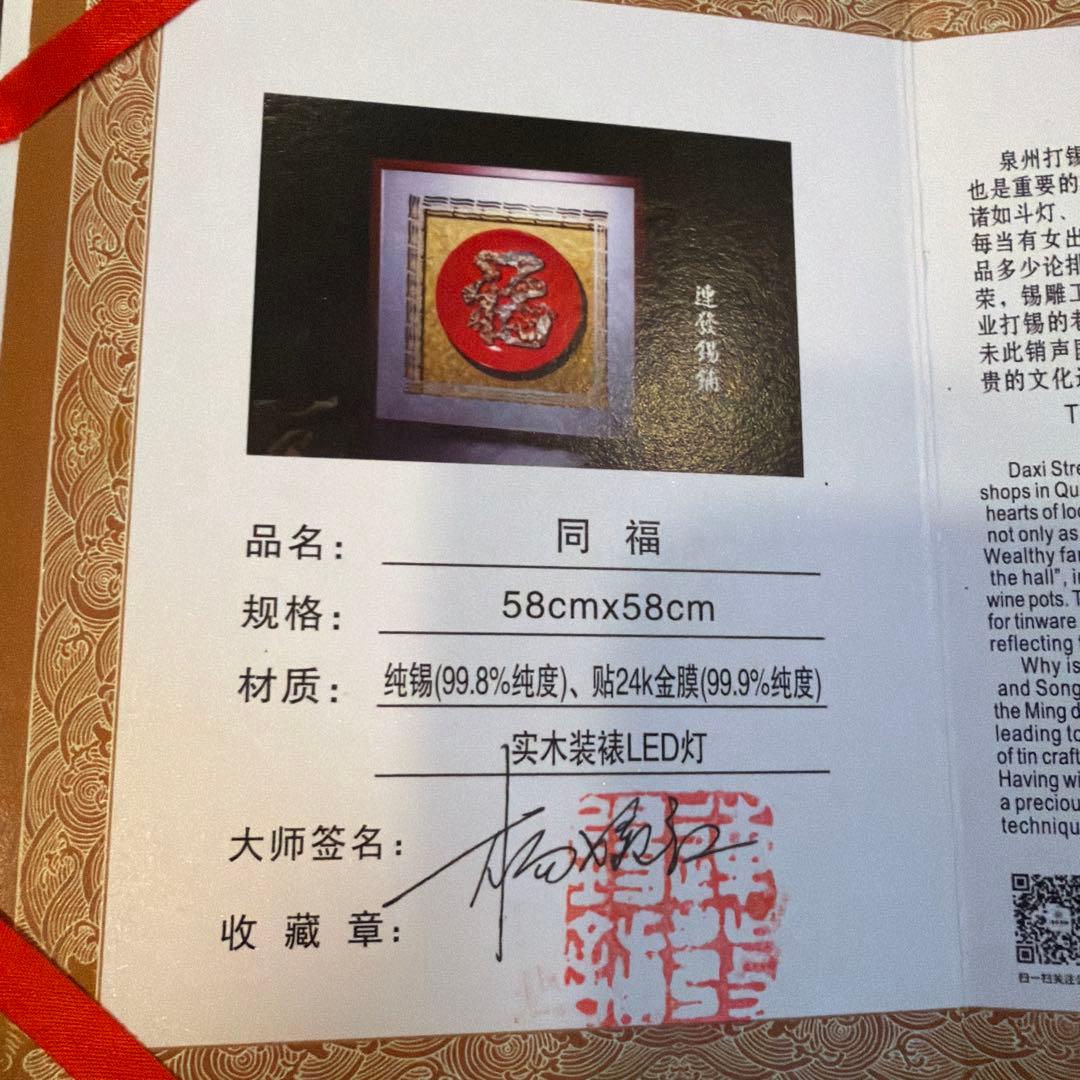 連發錫鋪
品名: 同 福
规格: 58cmx58cm
材质: 纯锡(99.8%纯度)、贴24k金膜(99.9%纯度)
实木装裱LED灯
大师签名:
收 藏 章:
泉州打锡
也是重要的
诸如斗灯、
每当有女出
品多少论排
荣，锡雕工
业打锡的老
未此销声匿
贵的文化
T
Daxi Stre
shops in Qu
hearts of loc
not only as
Wealthy far
the hall", i
wine pots. T
for tinware
reflecting
Why is
and Song
the Ming d
leading to
of tin craft
Having wi
a preciou
techniqu
扫一扫关注